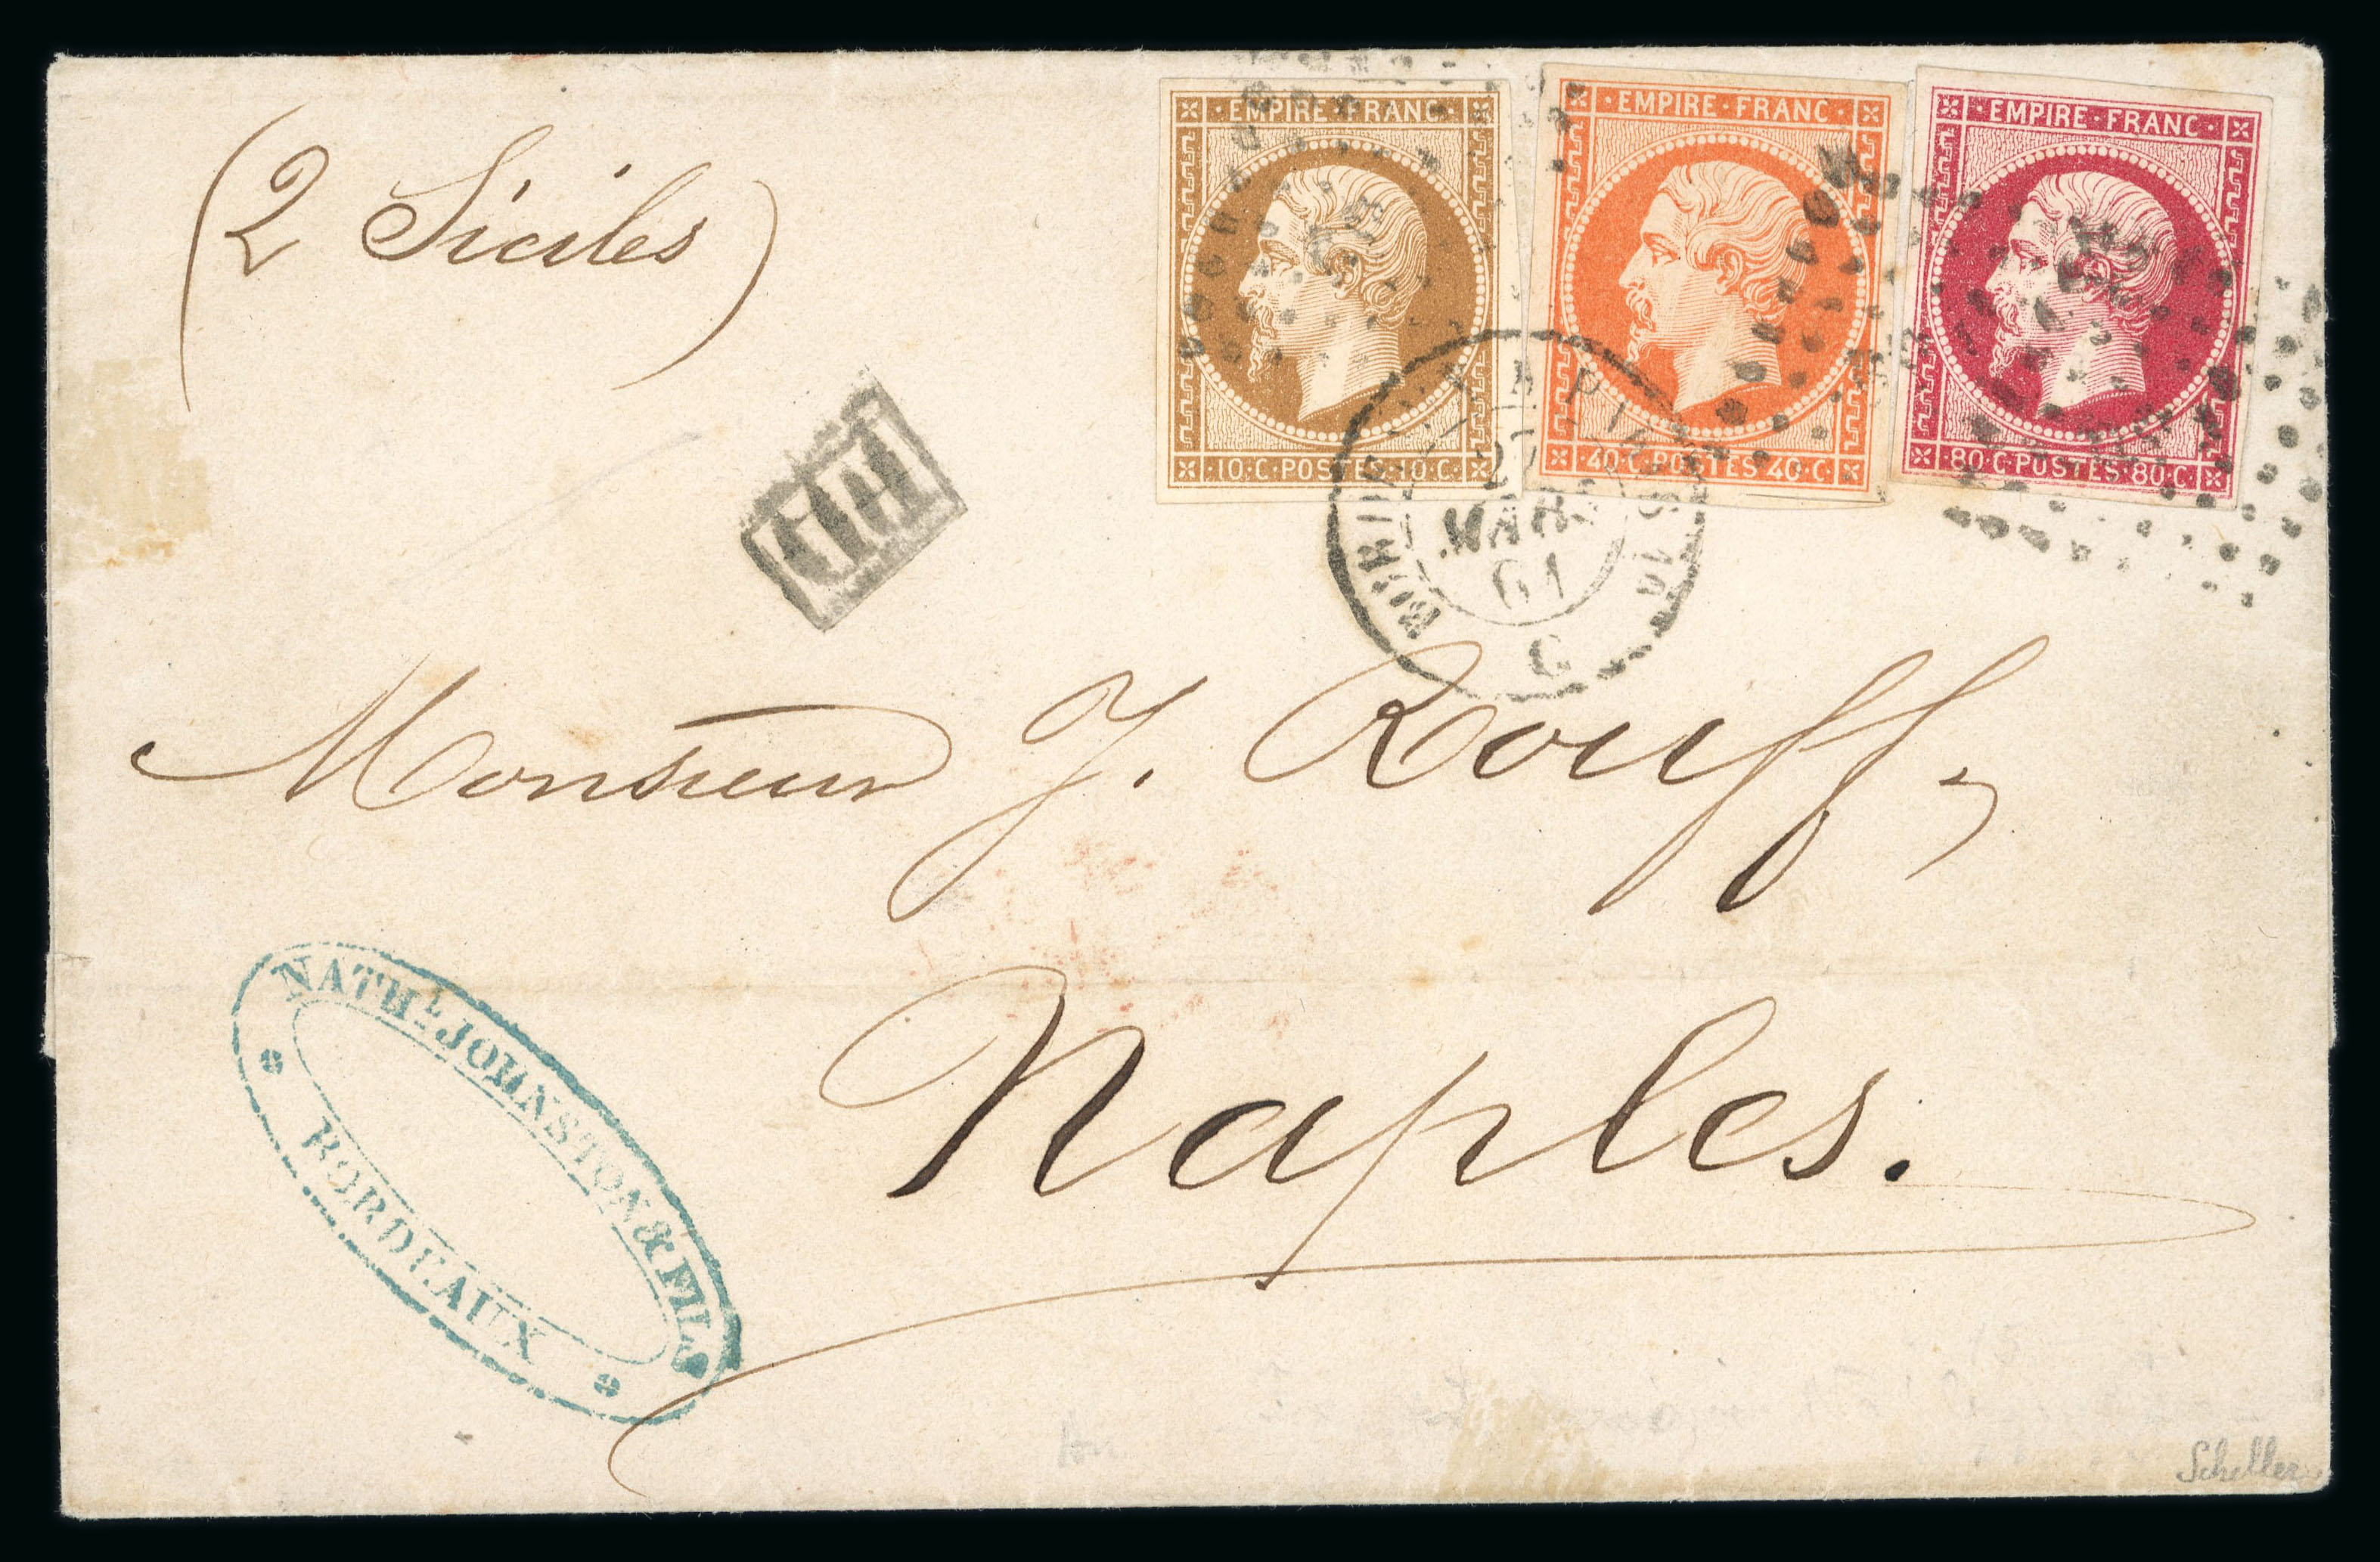 EMPIRE·FRANC·
10·C·POSTES·10·C·
EMPIRE·FRANC·
40·C·POSTES·40·C·
EMPIRE·FRANC·
80·C·POSTES·80·C·
(2 Siciles)
27
MARS
61
C
Monsieur J. Rouff,
Naples.
NATHL JOHNSTON & FILS
BORDEAUX
Scheller